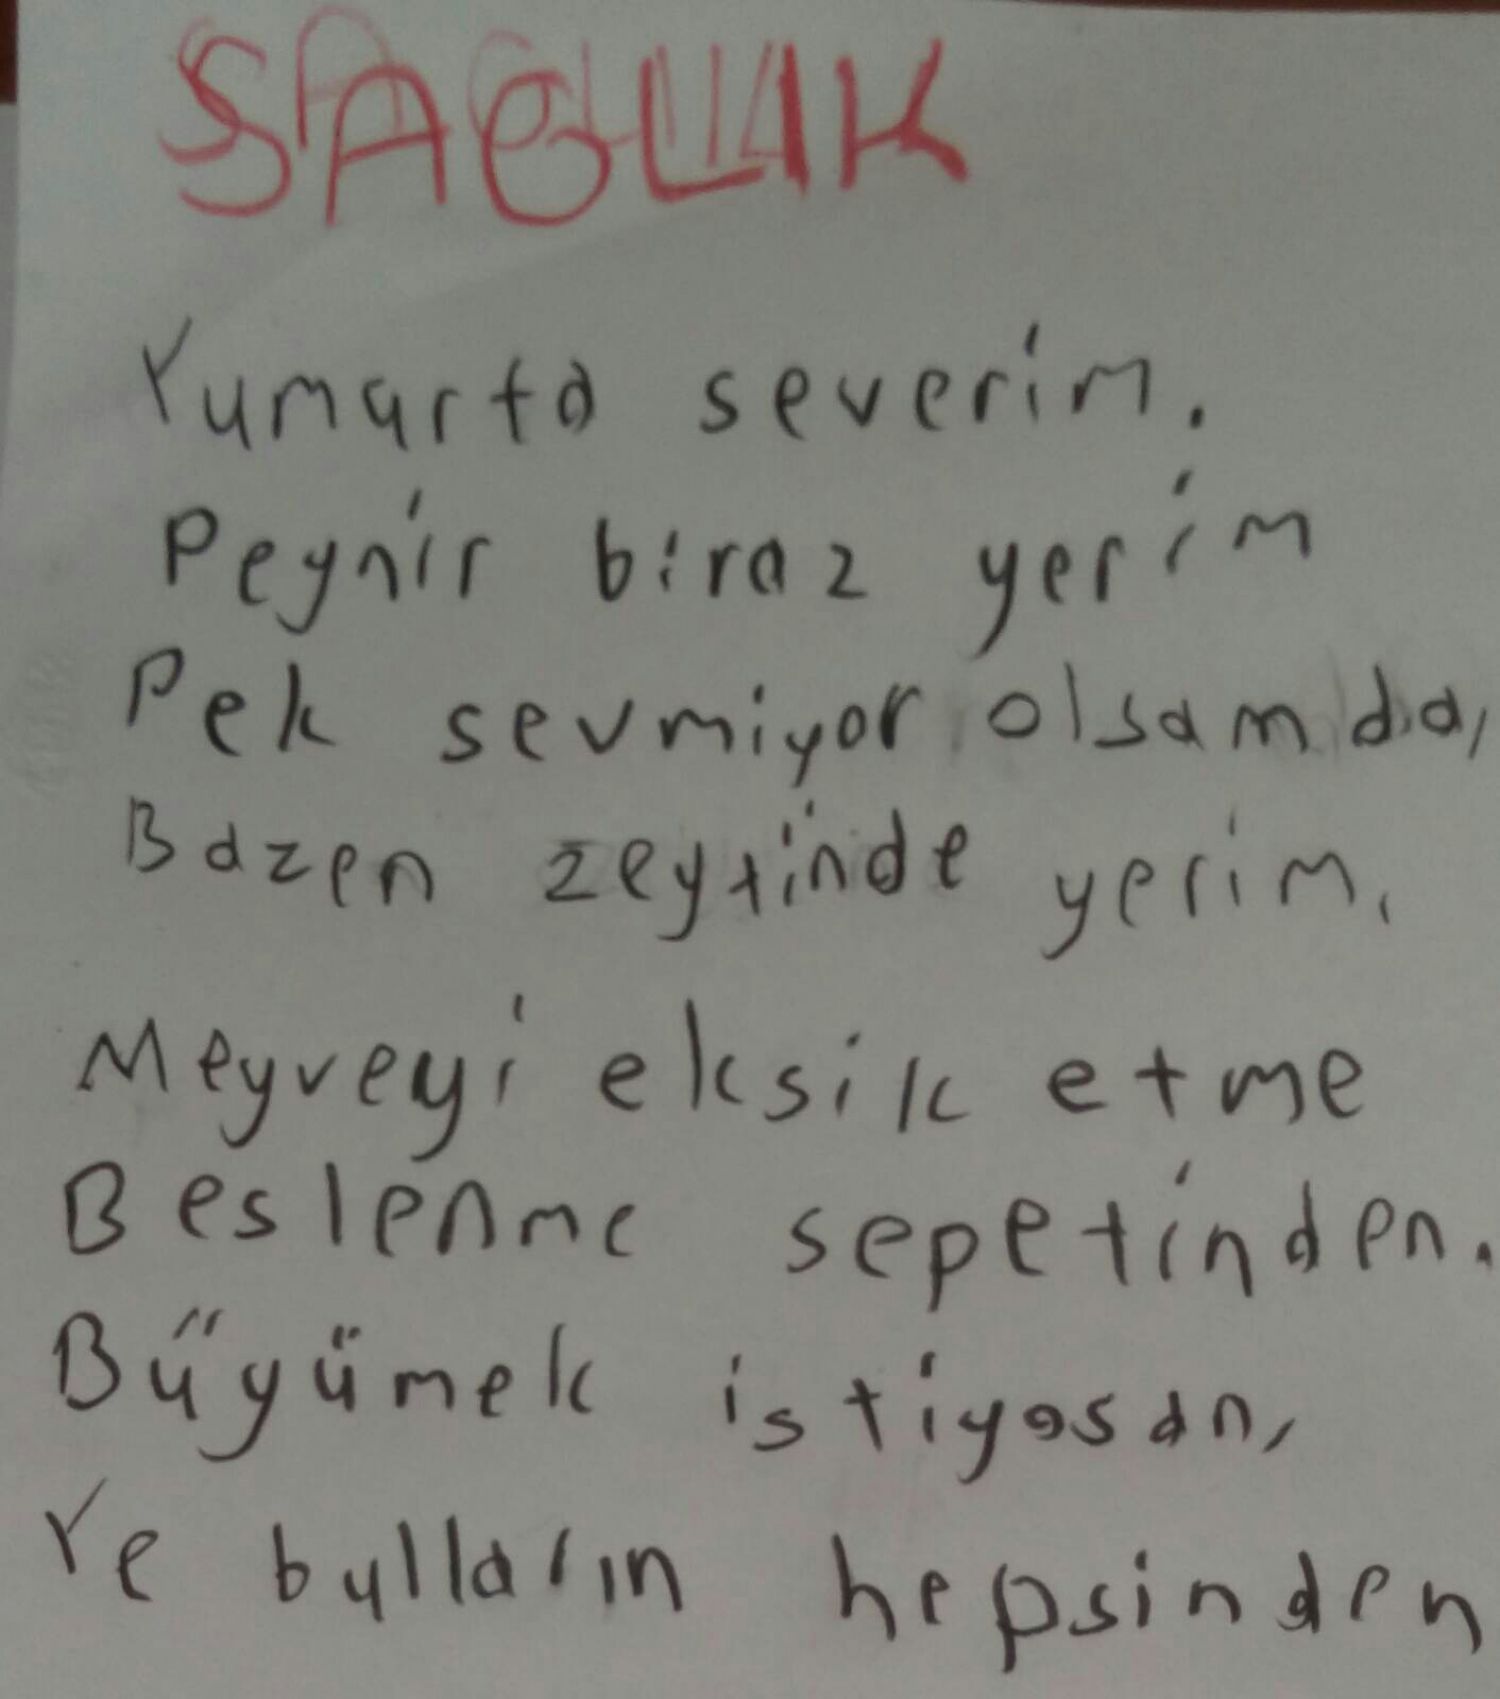 SAGLIK
Yumurta severim.
Peynir biraz yerim
Pek sevmiyor olsamda,
Bazen zeytinde yerim.
Meyveyi eksik etme
Beslenme sepetinden.
Büyümek istiyosan,
Ye bulların hepsinden